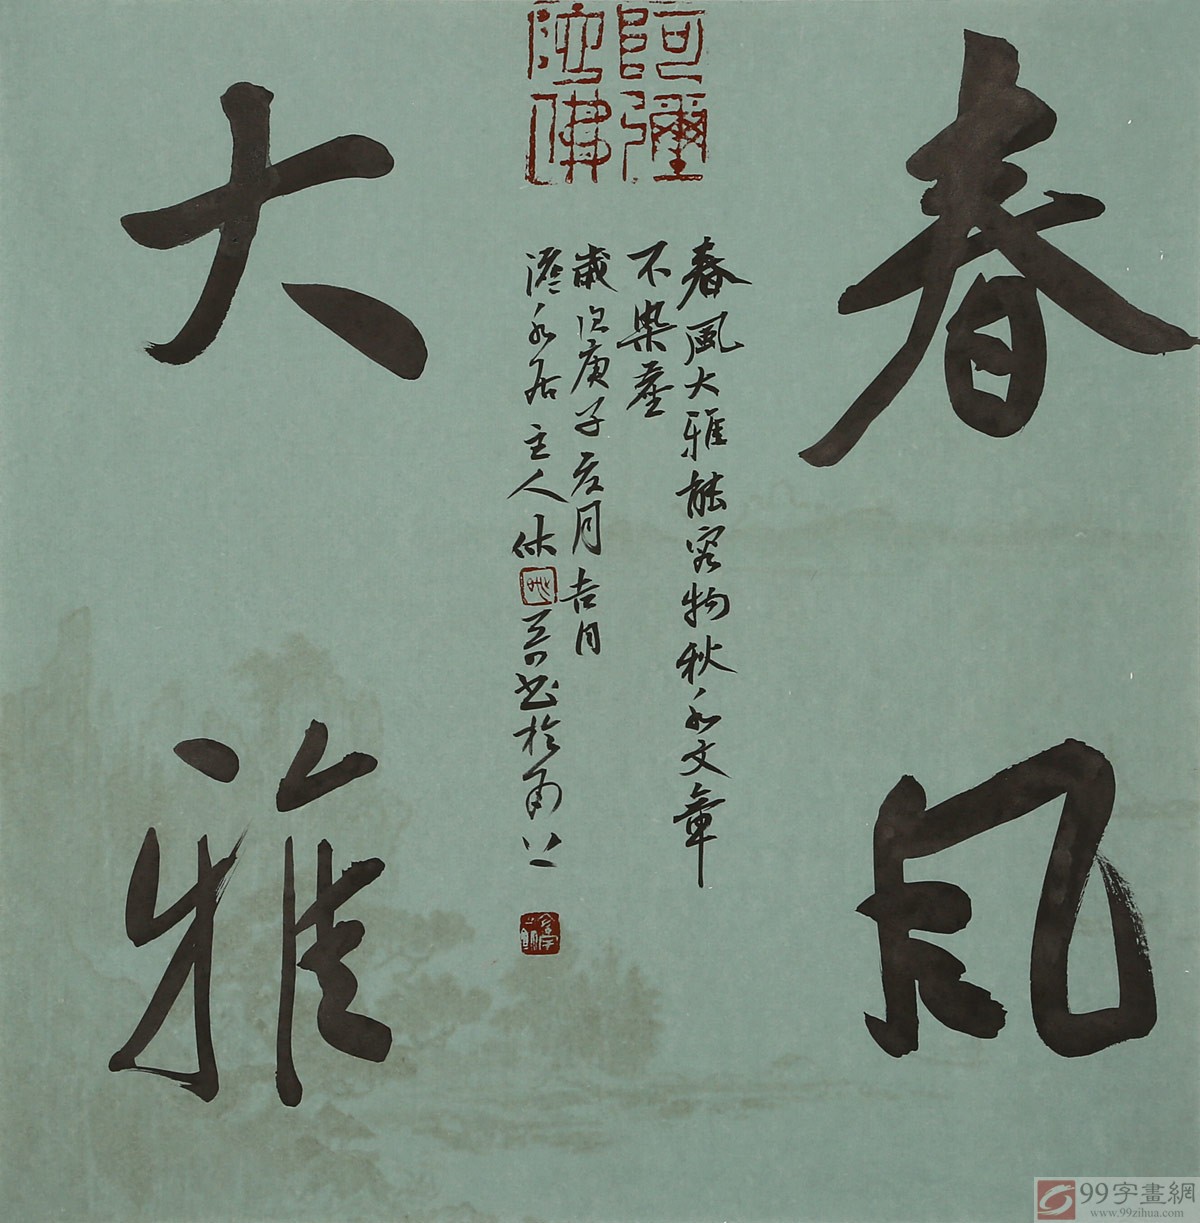 春風
阿彌
陀佛
春風大雅能容物秋水文章
不染塵
歲次庚子月吉日
水居主人休書於甬上
大雅
99字畫網
www.99zihua.com